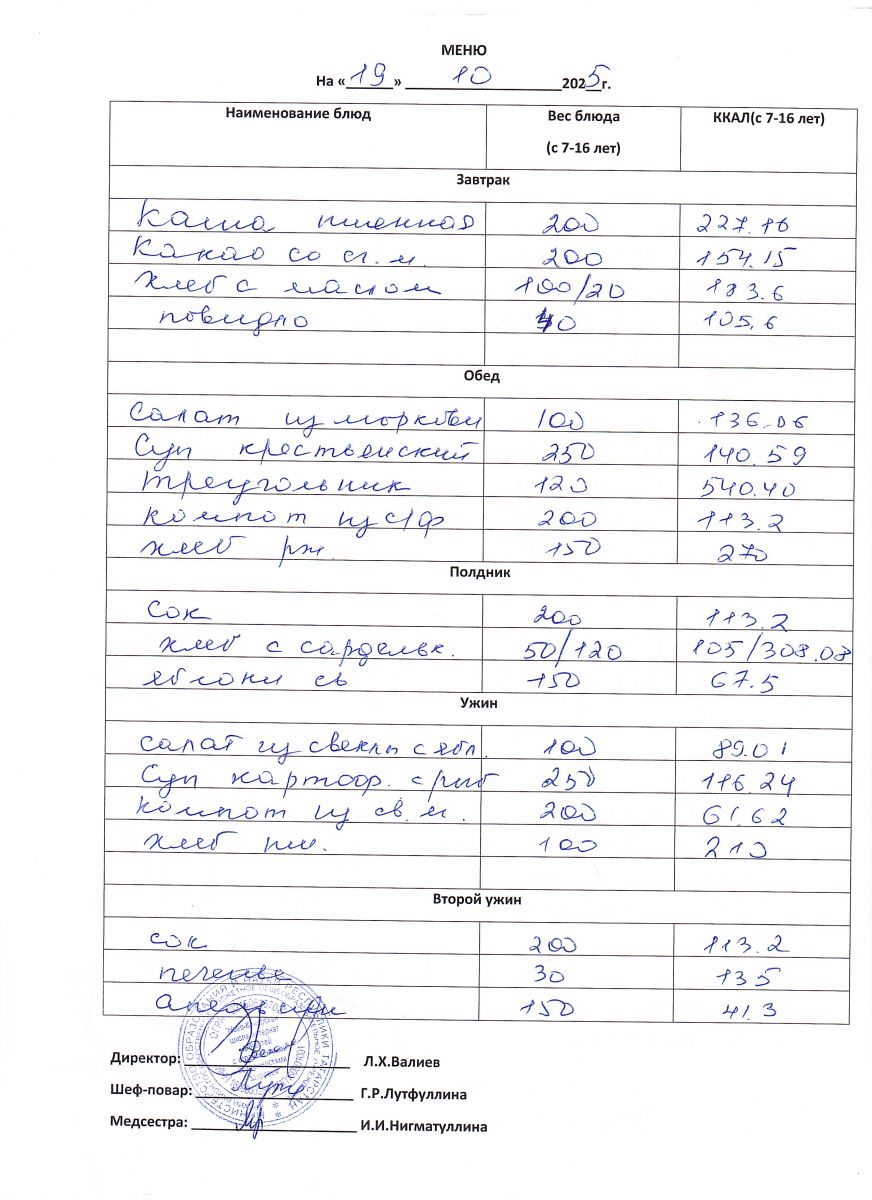 МЕНЮ
На «19» 10 2025г.
Наименование блюд Вес блюда (с 7-16 лет) ККАЛ(с 7-16 лет)
Завтрак
Каша пшенная 200 227.16
Какао со сг.м. 200 154.15
Хлеб с маслом 100/20 183.6
повидло 40 105.6
Обед
Салат из моркови 100 136.06
Суп крестьянский 250 140.59
треугольник 120 540.40
компот из с/ф 200 113.2
хлеб рж. 150 270
Полдник
Сок 200 113.2
хлеб с сардельк. 50/120 105/308.08
яблони св 150 67.5
Ужин
салат из свеклы с ябл. 100 89.01
Суп картоф. с рыб 250 116.24
компот из св.м. 200 61.62
хлеб пш. 100 210
Второй ужин
сок 200 113.2
печенье 30 135
апельсин 150 41.3
Директор: Л.Х.Валиев
Шеф-повар: Г.Р.Лутфуллина
Медсестра: И.И.Нигматуллина